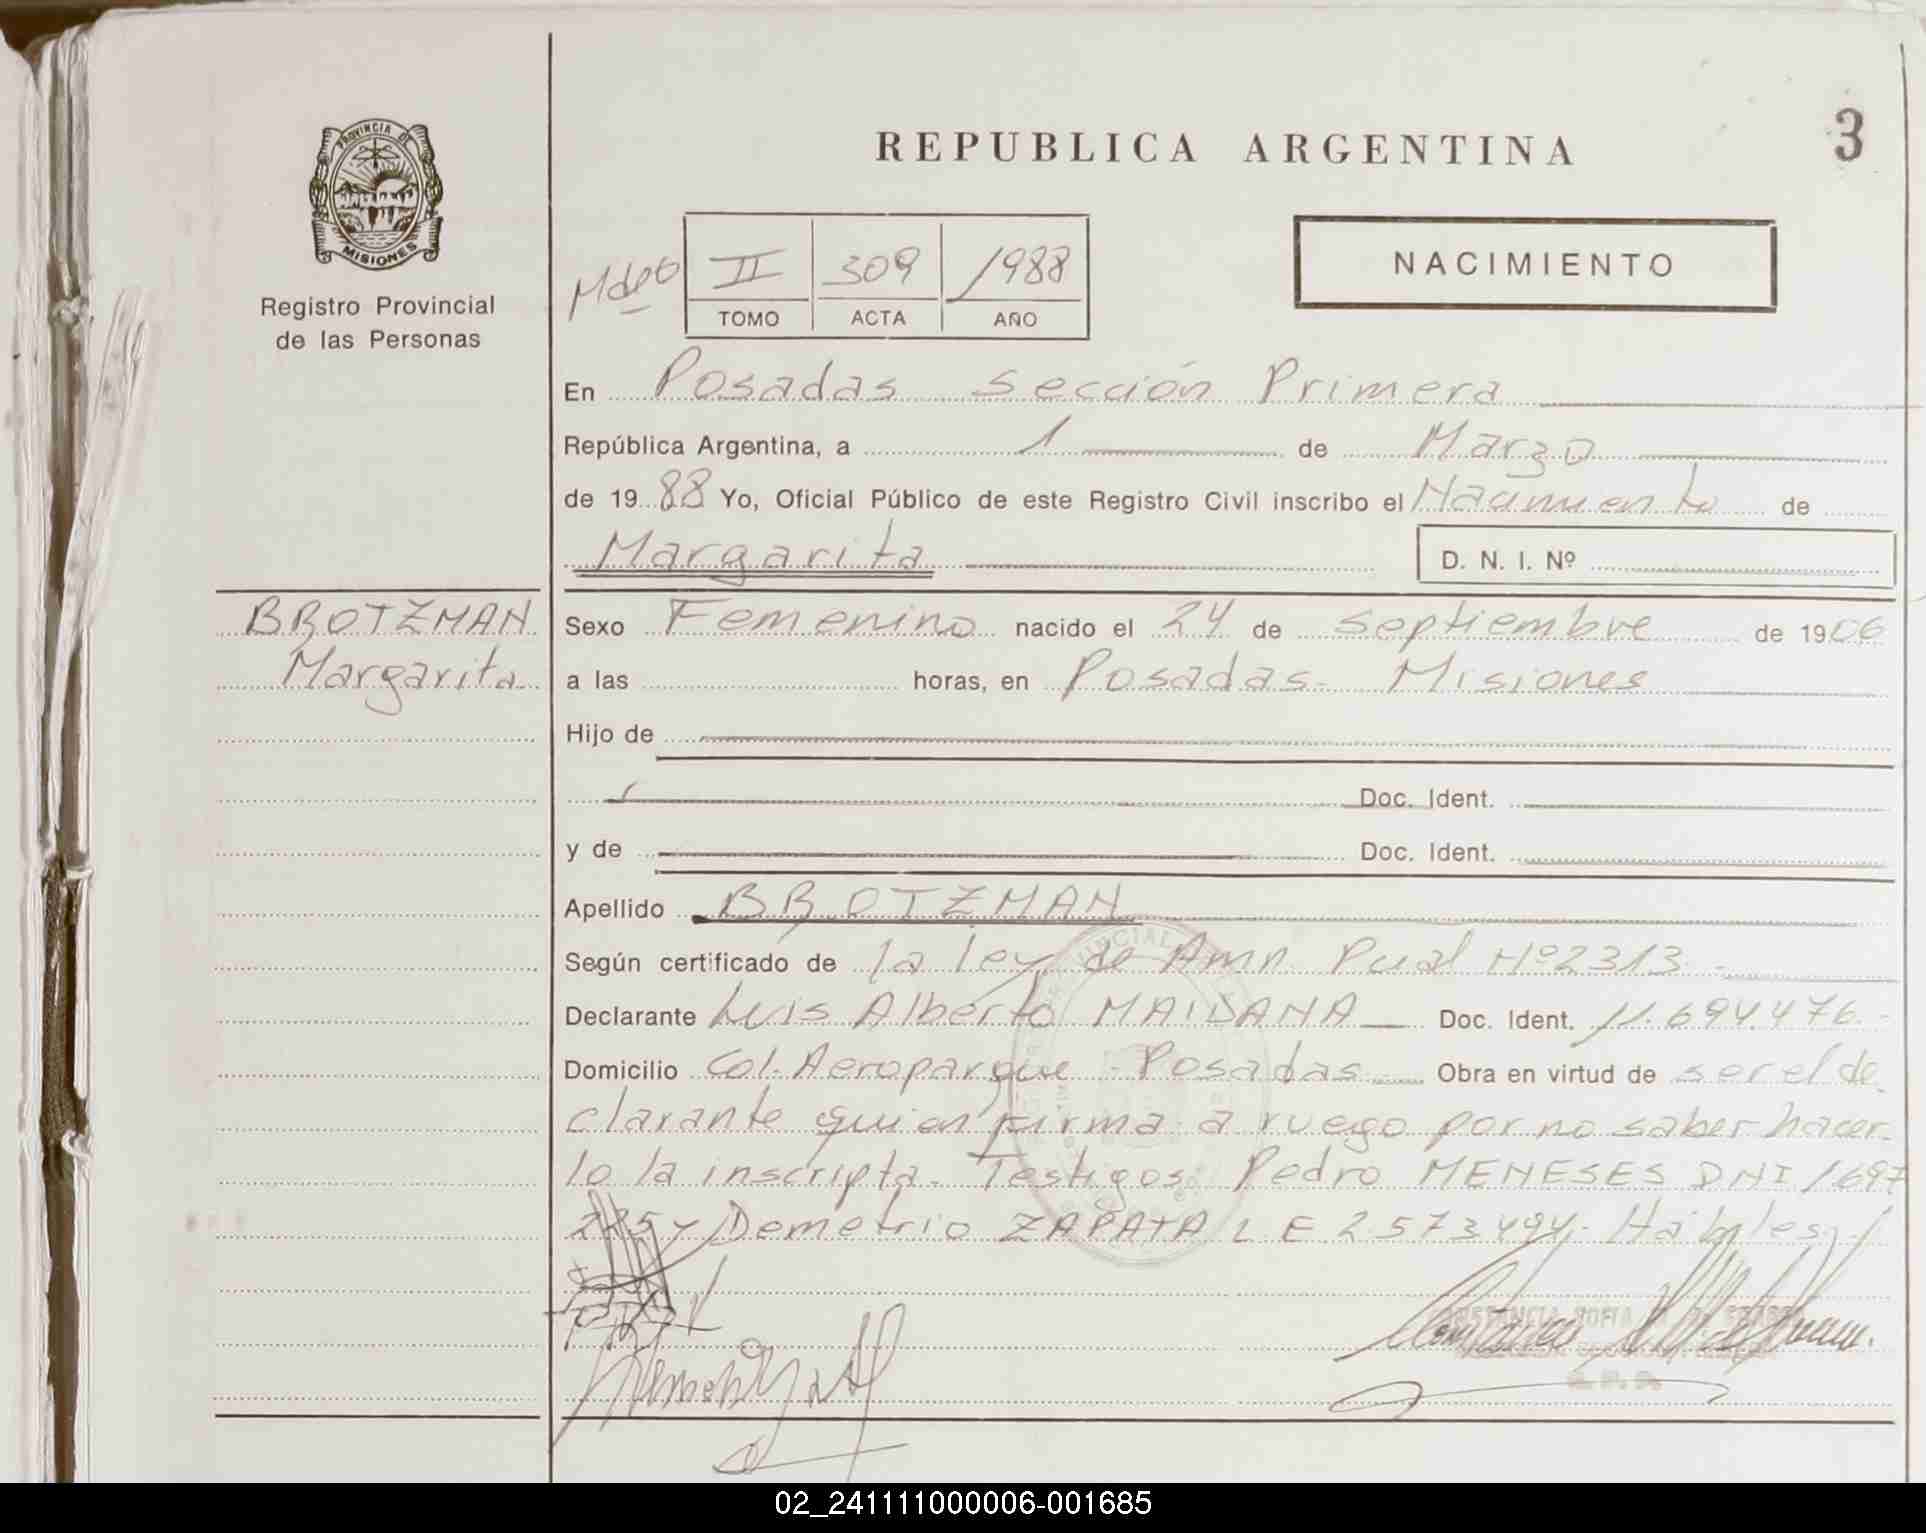 PROVINCIA DE
MISIONES
Registro Provincial
de las Personas
BROTZMAN
Margarita
REPUBLICA ARGENTINA
3
II 309 1988
TOMO ACTA AÑO
NACIMIENTO
En Posadas Sección Primera
República Argentina, a 1 de Marzo
de 19 88 Yo, Oficial Público de este Registro Civil inscribo el Nacimiento de
Margarita D. N. I. Nº
Sexo Femenino nacido el 24 de Septiembre de 1906
a las horas, en Posadas - Misiones
Hijo de
Doc. Ident.
y de Doc. Ident.
Apellido BROTZMAN
Según certificado de la ley de Amn. Pcial Nº 2313 -
Declarante Luis Alberto MAIDANA Doc. Ident. 11.694.476.-
Domicilio Col. Aeroparque - Posadas Obra en virtud de ser el de
clarante quien firma a ruego por no saber hacer-
lo la inscripta. Testigos Pedro MENESES DNI 1697
225 y Demetrio ZAPATA L E 2.573.494. Hábiles.-
02_241111000006-001685